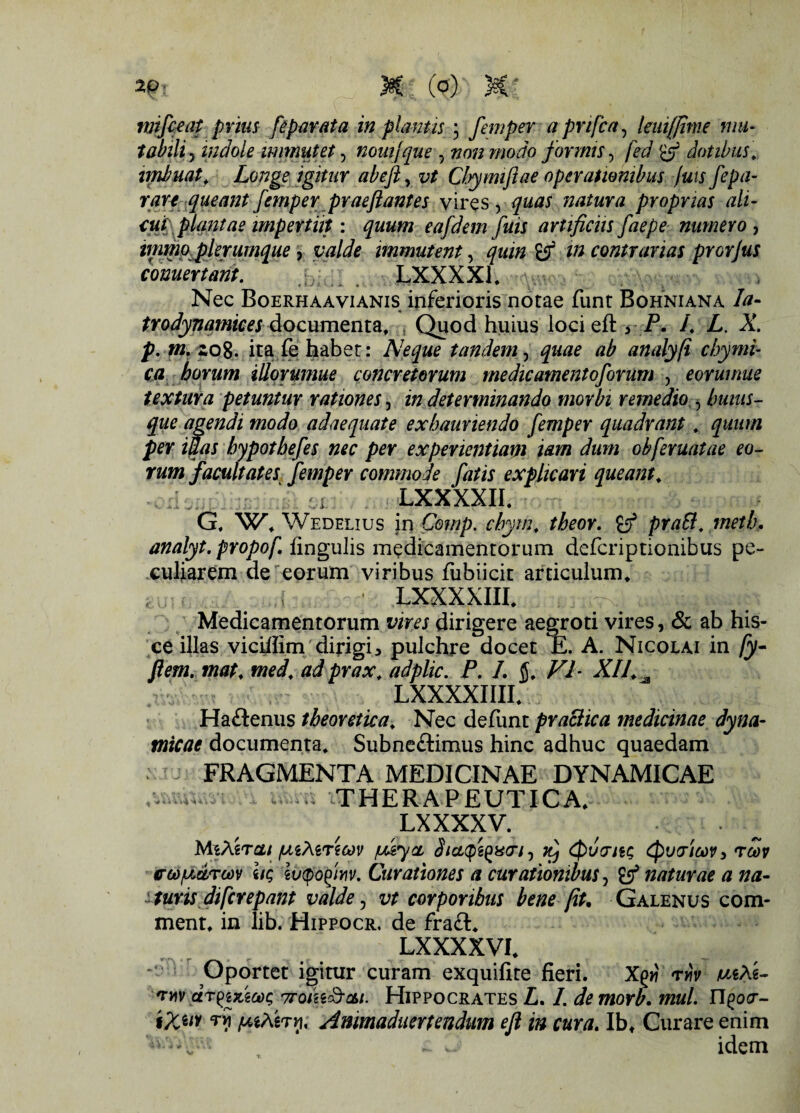 20 ⁜ (o) ⁜
misceat prius separata in plantis ; semper a prisca, leuissime mu-
tabili, indole immutet, nouisque, non modo formis, sed & dotibus,
imbuat. Longe igitur abest, vt Chymistae operationibus suis sepa-
rare queant semper praestantes vires, quas natura proprias ali-
cui plantae impertiit : quum easdem suis artificiis saepe numero,
immo plerumque, valde immutent, quin & in contrarias prorsus
conuertant. LXXXXI.
Nec BOERHAAVIANIS inferioris notae sunt BOHNIANA Ia-
trodynamices documenta. Quod huius loci est, P. I. L. X.
p. m. 208. ita se habet: Neque tandem, quae ab analysi chymi-
ca horum illorumue concretorum medicamentosorum, eorumue
textura petuntur rationes, in determinando morbi remedio, huius-
que agendi modo adaequate exhauriendo semper quadrant. quum
per illas hypotheses nec per experientiam iam dum obseruatae eo-
rum facultates semper commode satis explicari queant.
LXXXXII.
G. W. WEDELIUS in Comp. chym. theor. & pract. meth.
analyt. propos. singulis medicamentorum descriptionibus pe-
culiarem de eorum viribus subiicit articulum.
LXXXXIII.
Medicamentorum vires dirigere aegroti vires, & ab his-
ce illas vicissim dirigi, pulchre docet E. A. NICOLAI in sy-
stem. mat. med. ad prax. adplic. P. I. §. VI- XII.
LXXXXIIII.
Hactenus theoretica. Nec desunt practica medicinae dyna-
micae documenta. Subnectimus hinc adhuc quaedam
FRAGMENTA MEDICINAE DYNAMICAE
THERAPEUTICA.
LXXXXV.
Μελέται μελετέων μέγα διαφέρουσι, καὶ φύσιες φυσίων, τῶν
σωμάτων εἰς ἐυφορίην. Curationes a curationibus, & naturae a na-
turis discrepant valde, vt corporibus bene sit. GALENUS com-
ment. in lib. HIPPOCR. de fract.
LXXXXVI.
Oportet igitur curam exquisite fieri. Χρὴ τὴν μελέ-
την ἀτρεκέως ποιέεσθαι. HIPPOCRATES L. I. de morb. mul. Προσ-
έχειν τῇ μελέτῃ. Animaduertendum est in cura. Ib. Curare enim
idem